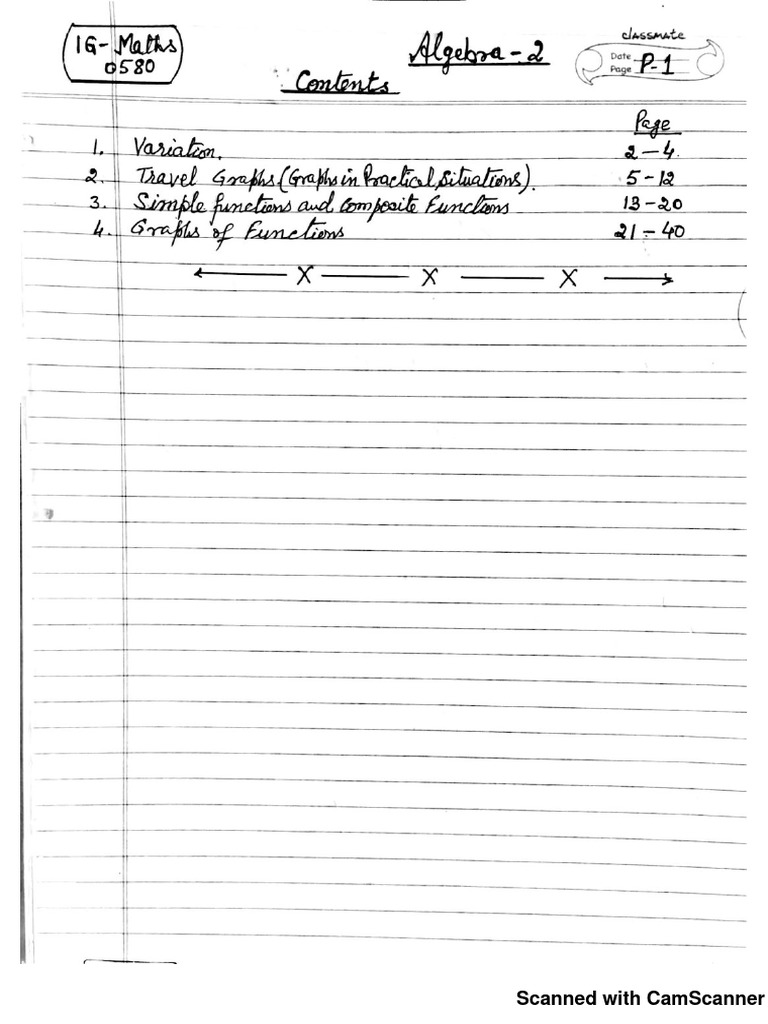 IG-Maths
0580
Algebra-2
classmate
Date
Page P-1
Contents
Page
1. Variation. 2-4.
2. Travel Graphs (Graphs in Practical Situations). 5-12
3. Simple functions and Composite Functions 13-20
4. Graphs of Functions 21-40
X X X
Scanned with CamScanner